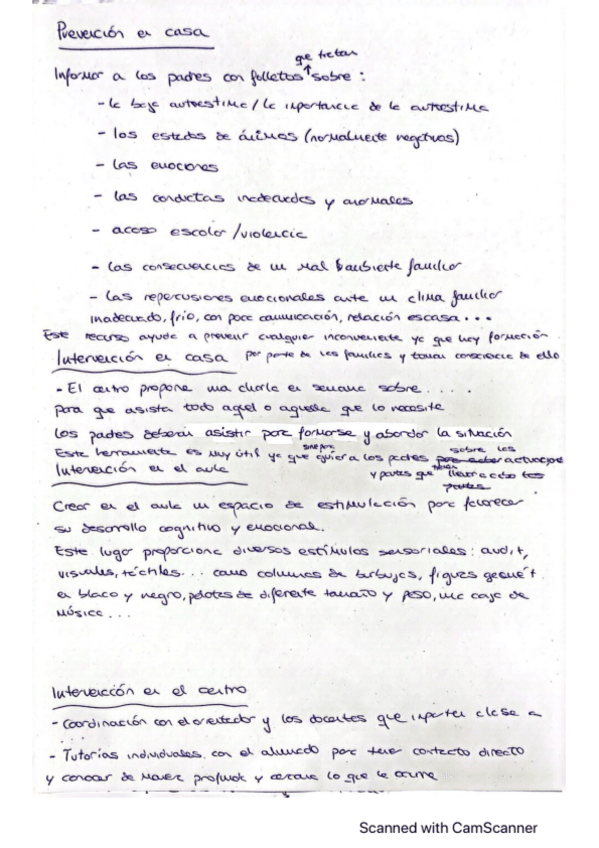 Prevención en casa
que tratan
Informar a los padres con folletos ↑ sobre :
- la baja autoestima / la importancia de la autoestima
- los estados de ánimos (normalmente negativos)
- las emociones
- las conductas inadecuadas y anormales
- acoso escolar / violencia
- las consecuencias de un mal ambiente familiar
- las repercusiones emocionales ante un clima familiar
inadecuado, frío, con poca comunicación, relación escasa...
Este recurso ayuda a prevenir cualquier inconveniente ya que hay formación
Intervención en casa por parte de las familias y toman consciencia de ello
- El centro propone una charla en semana sobre.....
para que asista todo aquel o aquella que lo necesite
los padres deberán asistir para formarse y abordar la situación
Esta herramienta es muy útil ya que sirve para guiar a los padres sobre las actuaciones
Intervención en el aula y pautas que tienen llevar a cabo
Crear en el aula un espacio de estimulación para favorecer
su desarrollo cognitivo y emocional.
Este lugar proporciona diversos estímulos sensoriales: audit,
visuales, táctiles... como columnas de burbujas, figuras geomét.
en blaco y negro, pelotas de diferente tamaño y peso, una caja de
música...
Intervención en el centro
- Coordinación con el orientador y los docentes que imparten clase a
...
- Tutorías individuales con el alumnado para tener contacto directo
y conocer de manera profunda y cercana lo que le ocurre
Scanned with CamScanner